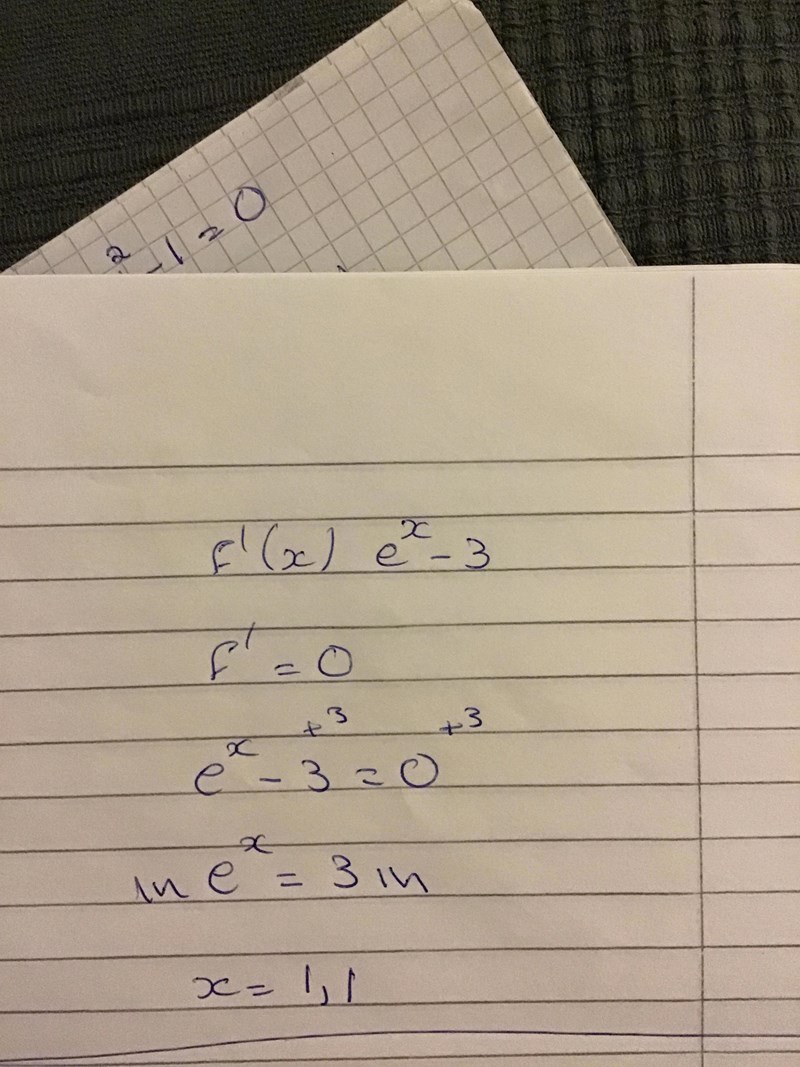 ² - 1 = 0
f'(x) eˣ - 3
f' = 0
+3 +3
eˣ - 3 = 0
ln eˣ = 3 ln
x = 1,1